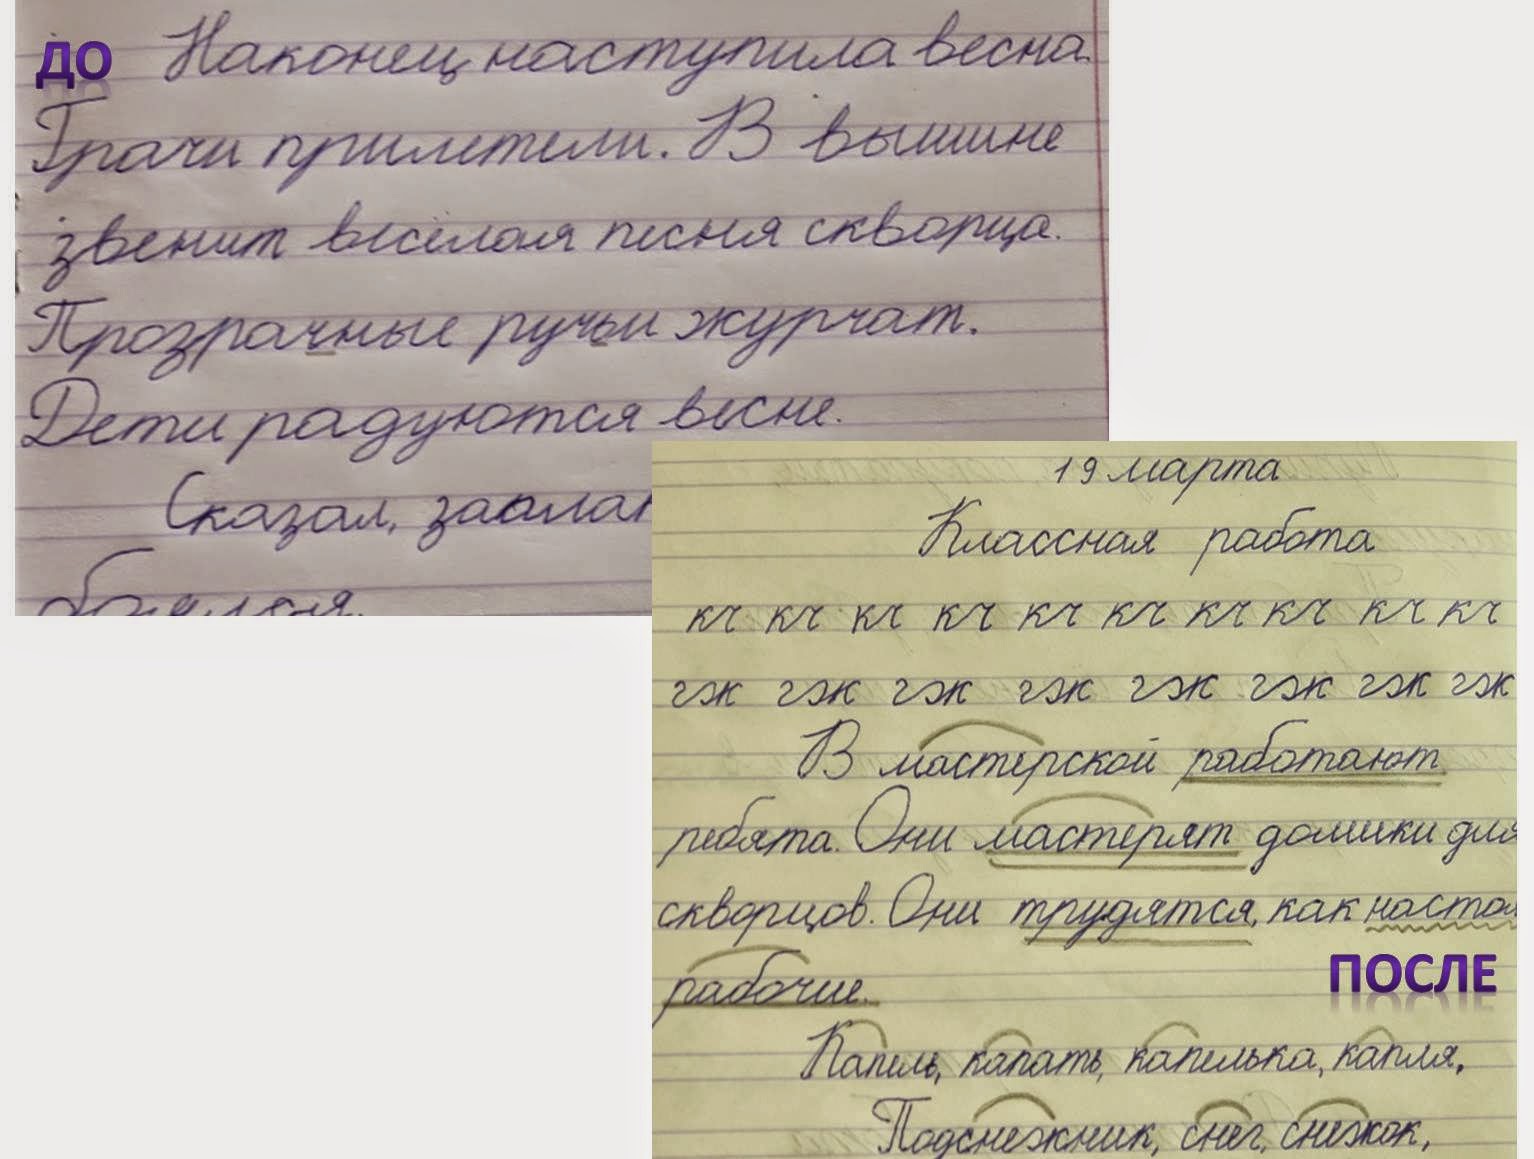 ДО
Наконец наступила весна.
Грачи прилетели. В вышине
звенит весёлая песня скворца.
Прозрачные ручьи журчат.
Дети радуются весне.
Сказал,
19 марта
Классная работа
кч кч кч кч кч кч кч кч кч кч
гж гж гж гж гж гж гж гж
В мастерской работают
ребята. Они мастерят домики для
скворцов. Они трудятся, как
рабочие.
ПОСЛЕ
Капель, капать, капелька, капля,
Подснежник, снег, снежок,